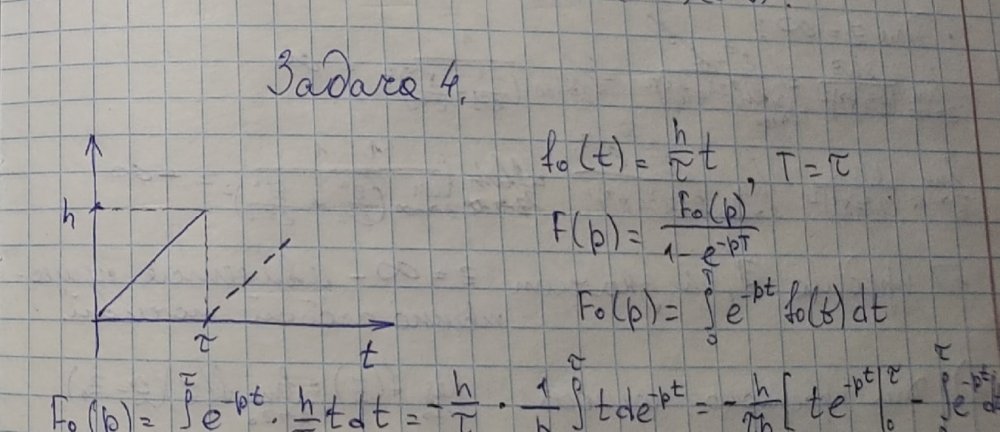 Задача 4.
f₀(t) = h/τ t, T = τ
h
F(p) = F₀(p)/(1 - e^{-pT})
F₀(p) = ∫₀^T e^{-pt} f₀(t) dt
τ
t
F₀(p) = ∫₀^τ e^{-pt} · h/τ t dt = - h/τ · 1/p ∫₀^τ t de^{-pt} = - h/τp [ te^{-pt} |₀^τ - ∫^τ e^{-pt} d